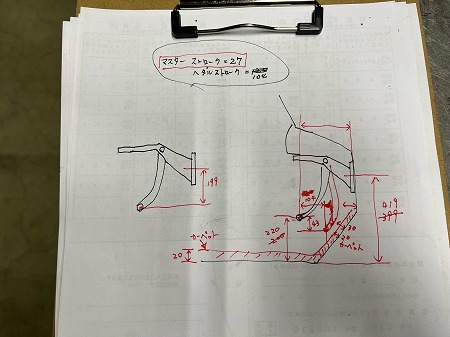 マスター ストローク=27
ペダルストローク=
104
199
104
419
399
220
43
30
20
カーペット
カーペット
20